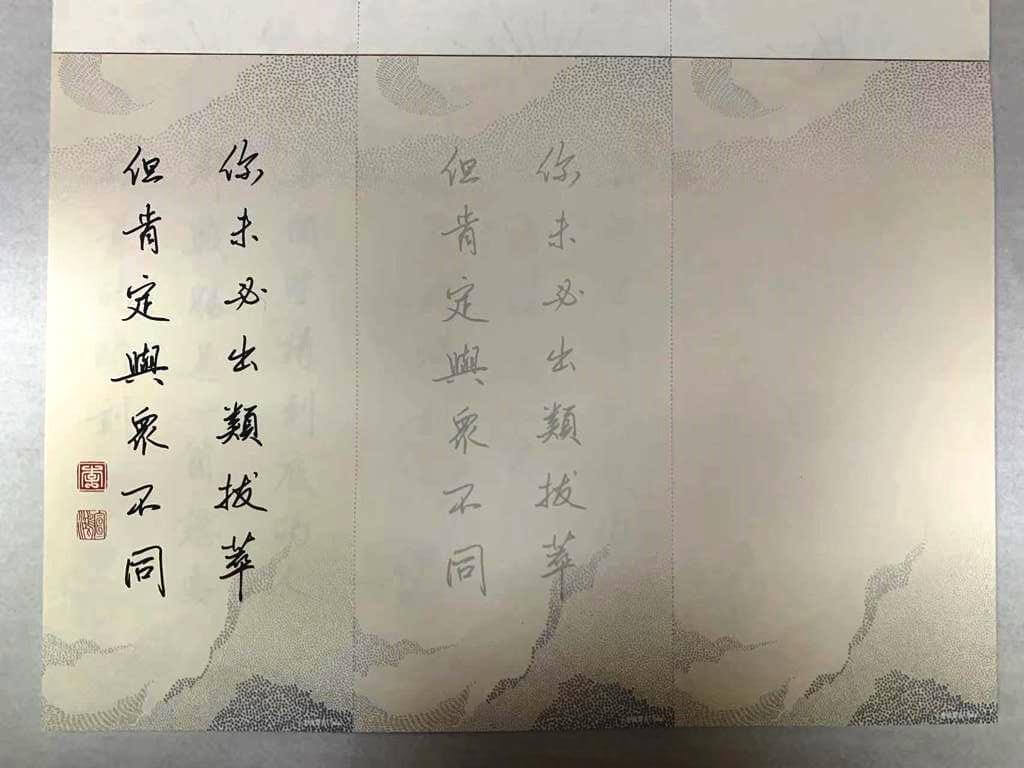 你未必出類拔萃
但肯定與眾不同
你未必出類拔萃
但肯定與眾不同